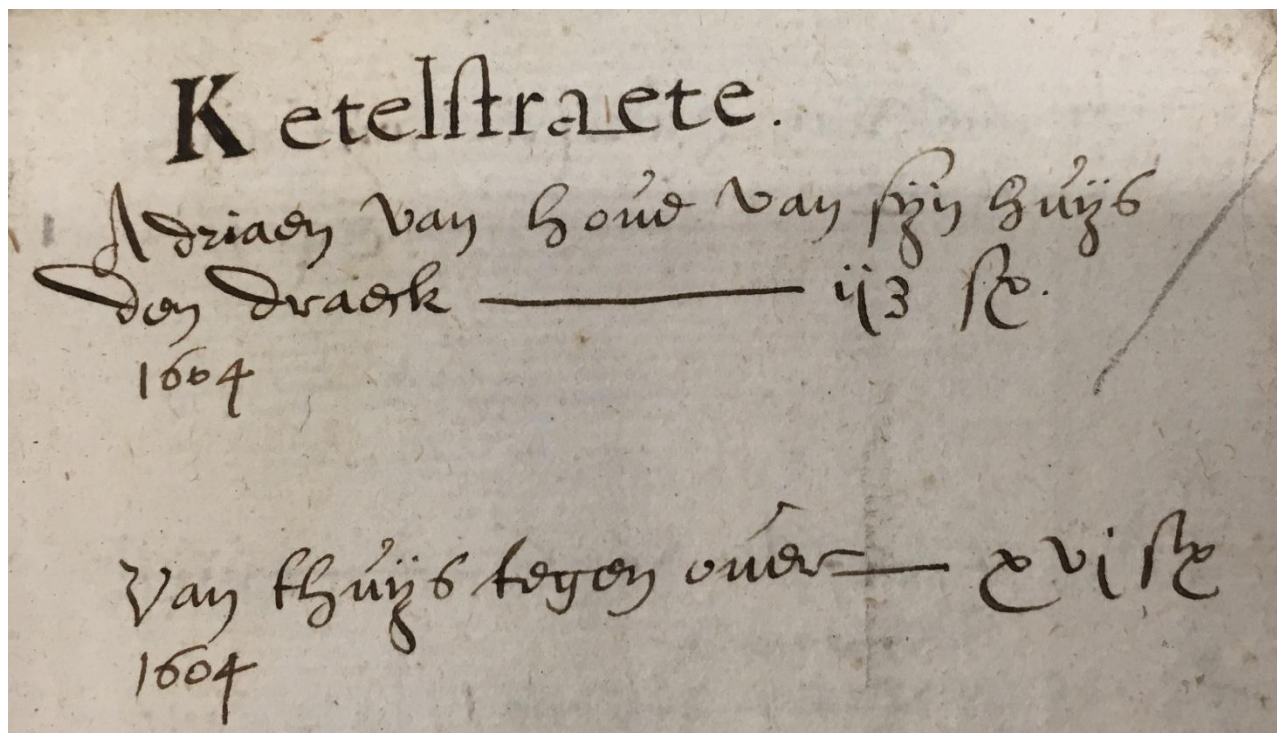 Ketelstraete.
Adriaen van houe van sijn huijs
den draeck ijȝ sx.
1604
Van thuijs tegen ouer xvi sx
1604